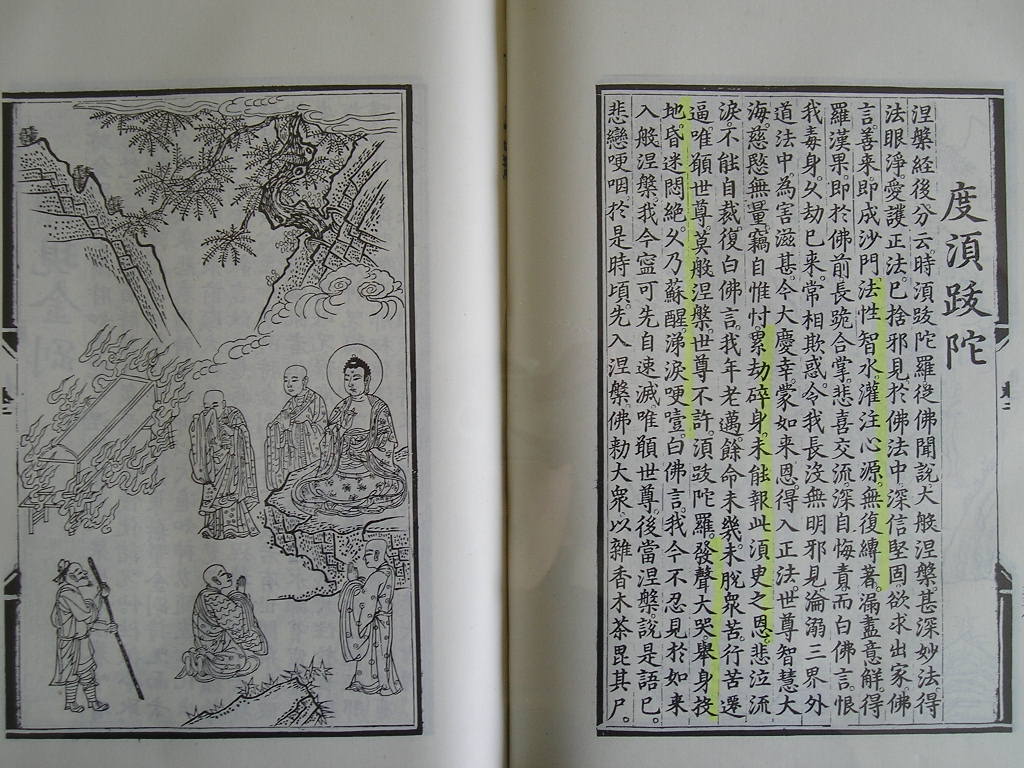 度須跋陀
涅槃經後分云。時須跋陀羅從佛聞說大般涅槃甚深妙法。得
法眼淨。愛護正法。已捨邪見。於佛法中深信堅固。欲求出家。佛
言。善來。即成沙門。法性智水。灌注心源。無復縛著。漏盡意解。得
羅漢果。即於佛前。長跪合掌。悲喜交流。深自悔責。而白佛言。恨
我毒身。久劫已來。常相欺惑。令我長沒無明邪見。淪溺三界外
道法中。為害滋甚。今大慶幸。蒙如來恩。得入正法。世尊智慧大
海。慈愍無量。竊自惟忖。累劫碎身。未能報此須臾之恩。悲泣流
淚。不能自裁。復白佛言。我年老邁。餘命未幾。未脫眾苦。行苦遷
逼。唯願世尊。莫般涅槃。世尊不許。須跋陀羅。發聲大哭。舉身投
地。昏迷悶絕。久乃蘇醒。涕淚哽噎。白佛言。我今不忍見於如來
入般涅槃。我今寧可先自速滅。唯願世尊。後當涅槃。說是語已。
悲戀哽咽。於是時頃。先入涅槃。佛勅大眾。以雜香木。茶毘其尸。